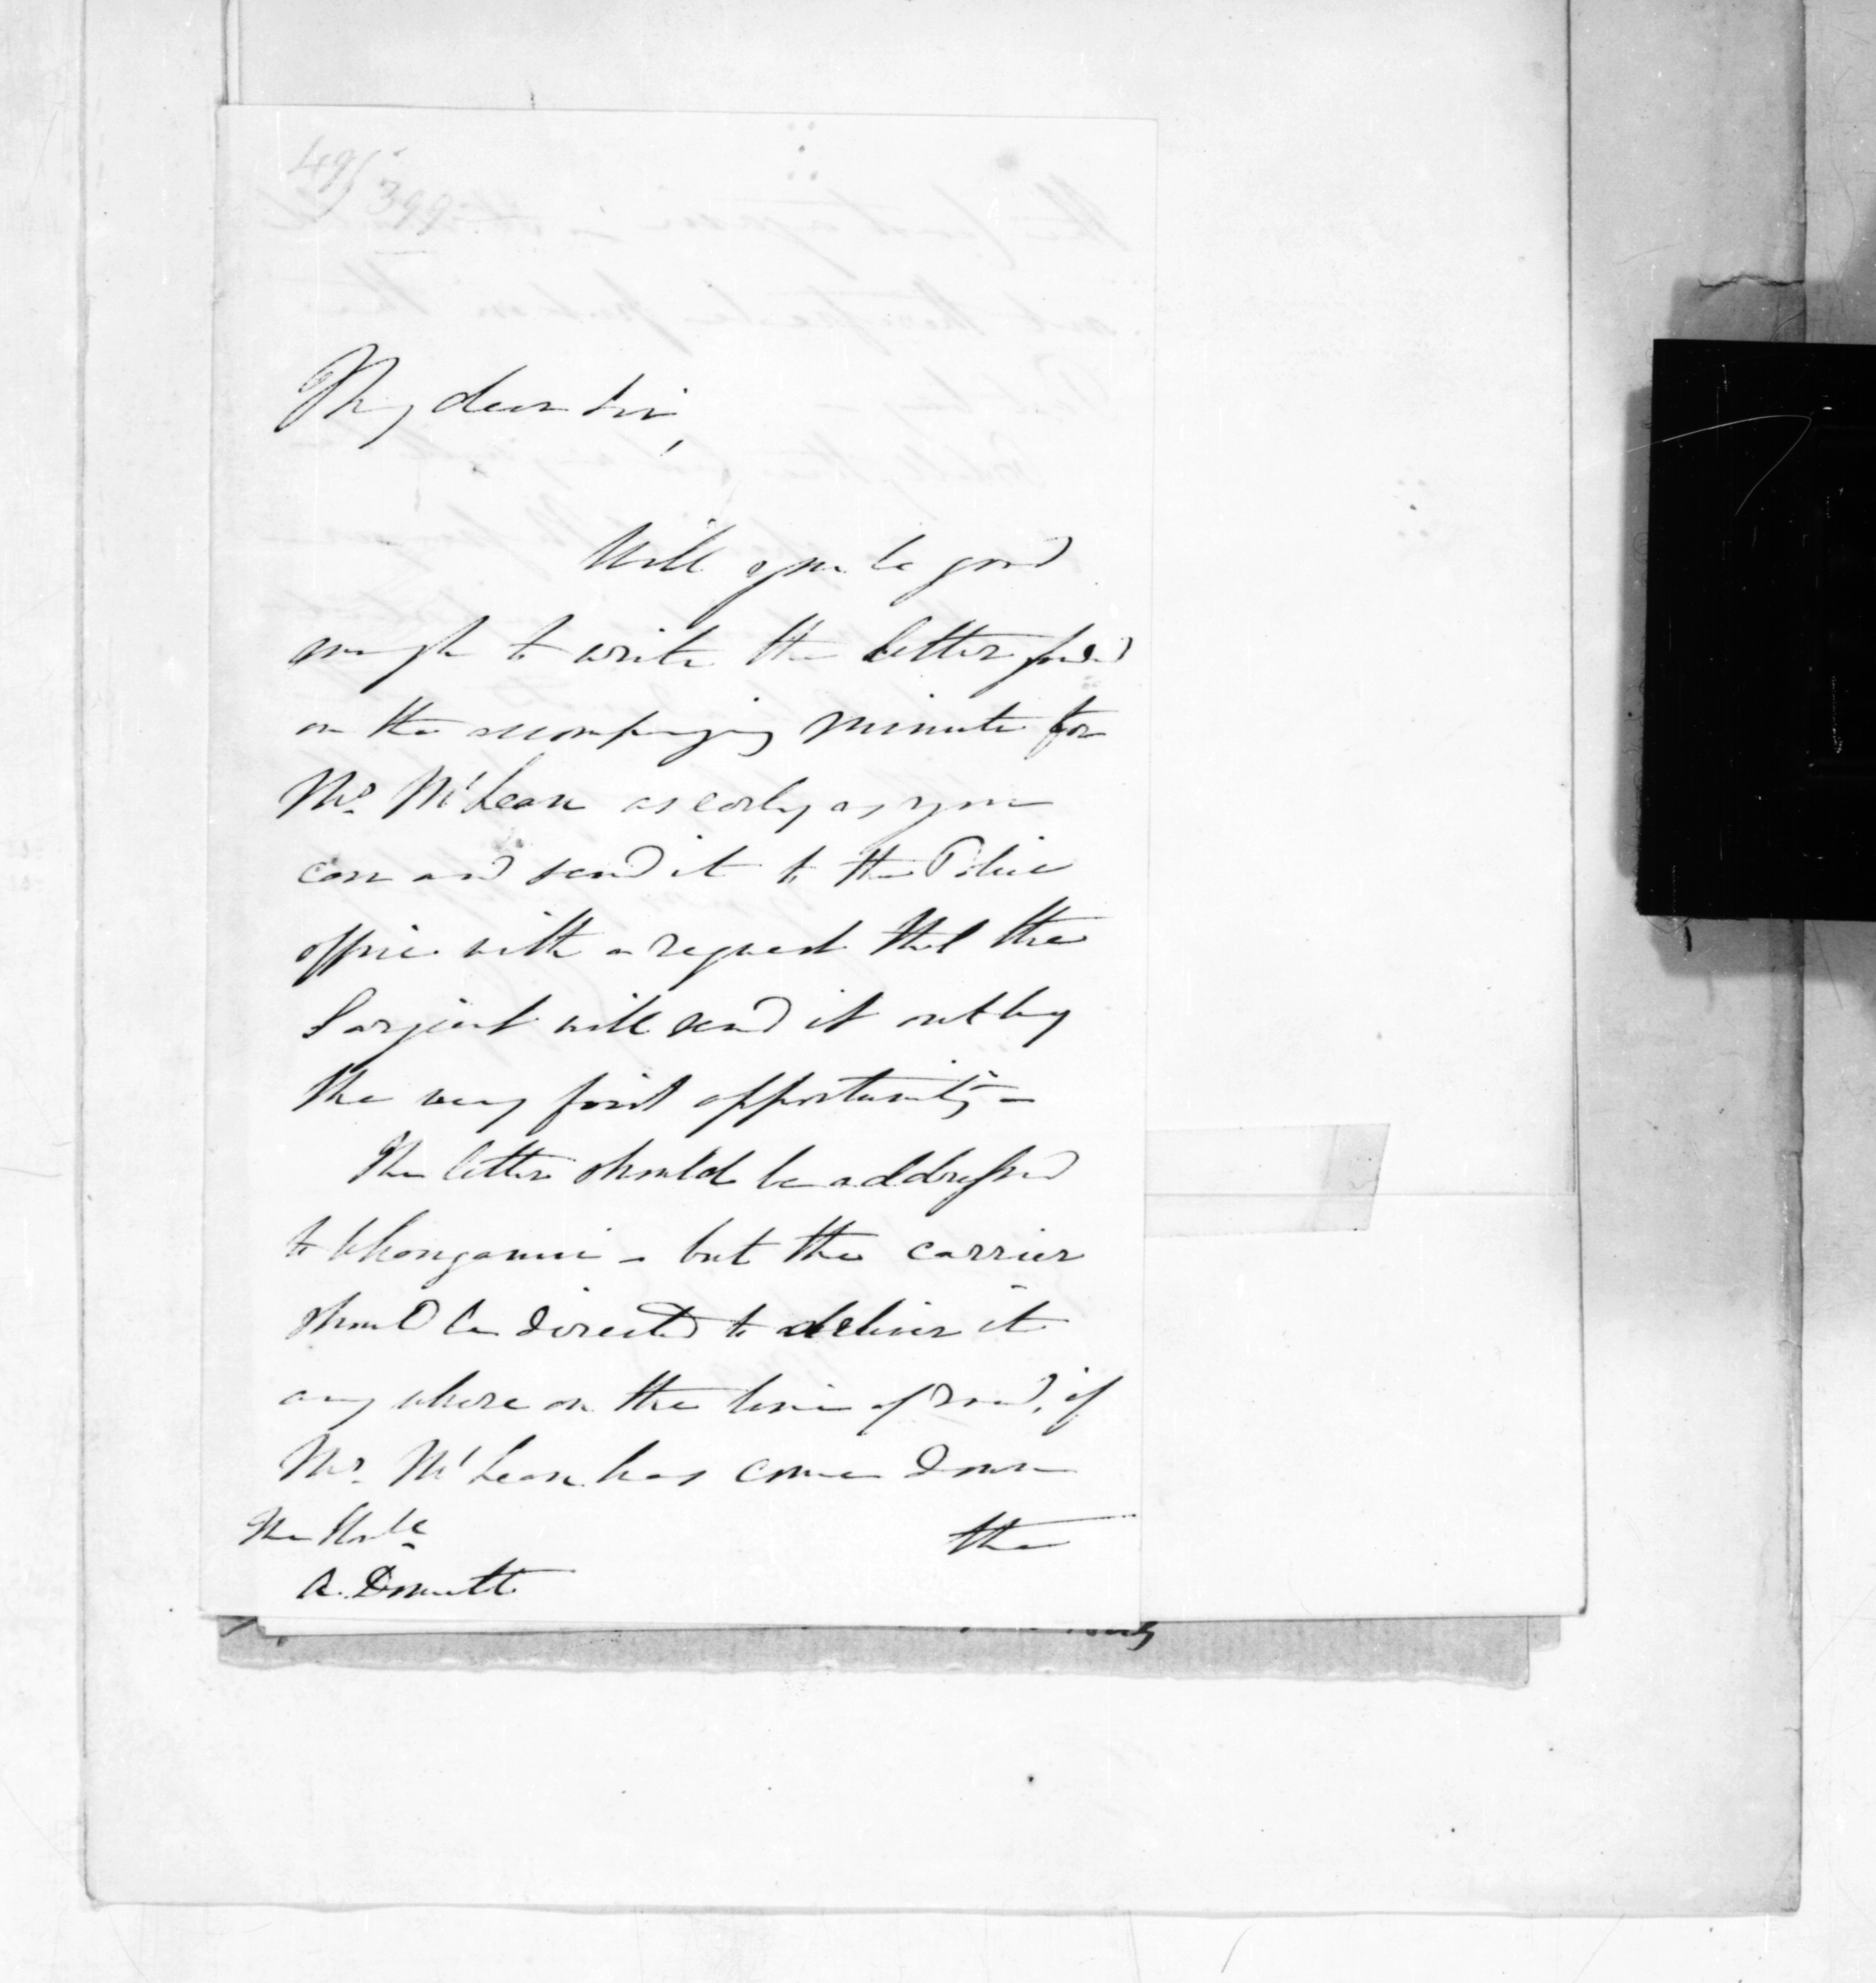 49/399
My dear Sir,
Will you be good
enough to write the letter
on the accompanying minute for
Mr. McLean as early as you
can and send it to the Police
office with a request that the
Sargient will send it out by
the very first opportunity -
The letter should be addressed
to Whanganui - but the carrier
should be directed to deliver it
any where on the line of road, if
Mr. McLean has come down
the
The Honble
A. Domett